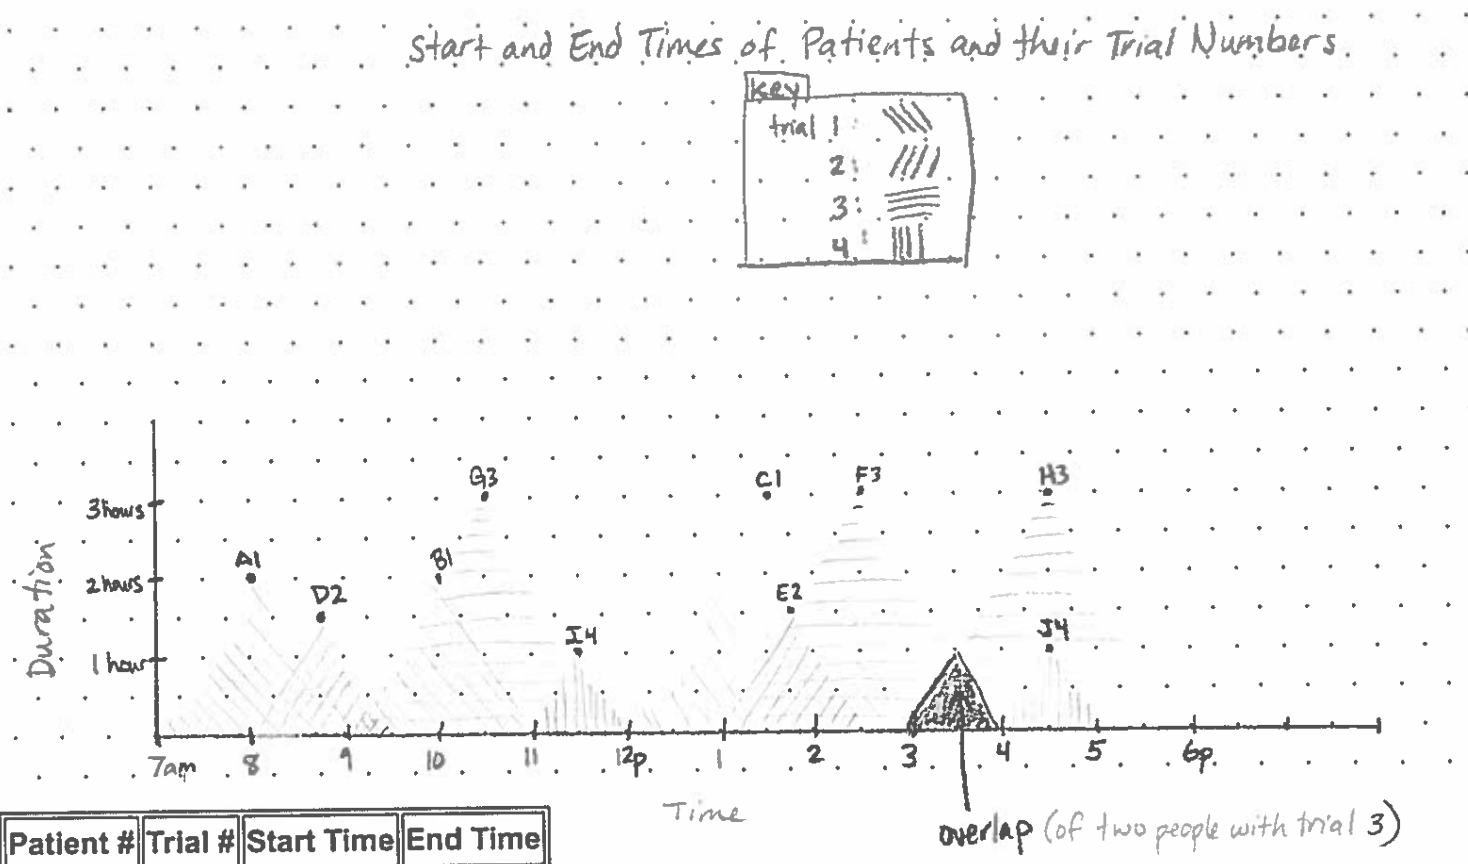 Start and End Times of Patients and their Trial Numbers
Key
trial 1:
2:
3:
4:
G3
C1
F3
H3
3 hours
A1
B1
2 hours
D2
E2
I4
J4
1 hour
Duration
7am 8 9 10 11 12p. 1 2 3 4 5 6p.
Time
overlap (of two people with trial 3)
Patient # Trial # Start Time End Time